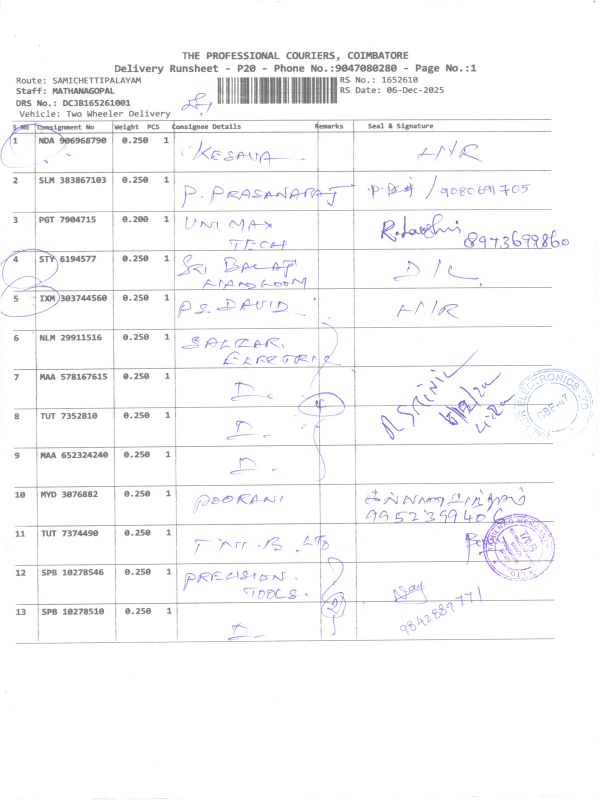 THE PROFESSIONAL COURIERS, COIMBATORE
Delivery Runsheet - P20 - Phone No.:9047080280 - Page No.:1
Route: SAMICHETTIPALAYAM
RS No.: 1652610
Staff: MATHANAGOPAL
RS Date: 06-Dec-2025
DRS No.: DCJB165261001
Vehicle: Two Wheeler Delivery
S.No Consignment No Weight PCS Consignee Details Remarks Seal & Signature
1 NDA 906968790 0.250 1 KESAVA H/R
2 SLM 383867103 0.250 1 P. PRASANARAJ
3 PGT 7904715 0.200 1 UNIMAX
TECH 8973699860
4 STY 6194577 0.250 1 SRI BALAJI D/L
HANDLOOM
5 IXM 303744560 0.250 1 P.S. DAVID H/R
6 NLM 29911516 0.250 1 SALZAR
ELECTRIC
7 MAA 578167615 0.250 1 D.
8 TUT 7352810 0.250 1 D.
9 MAA 652324240 0.250 1 D.
10 MYD 3076882 0.250 1 POORANI
9952399406
11 TUT 7374490 0.250 1 T.M.B. LTD
12 SPB 10278546 0.250 1 PRECISION
TOOLS.
13 SPB 10278510 0.250 1 D. 2
9842889771